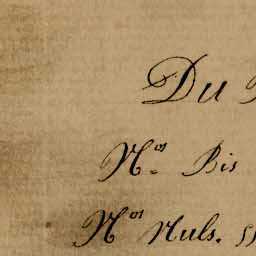 Du
N.os Bis
Nos Nuls.